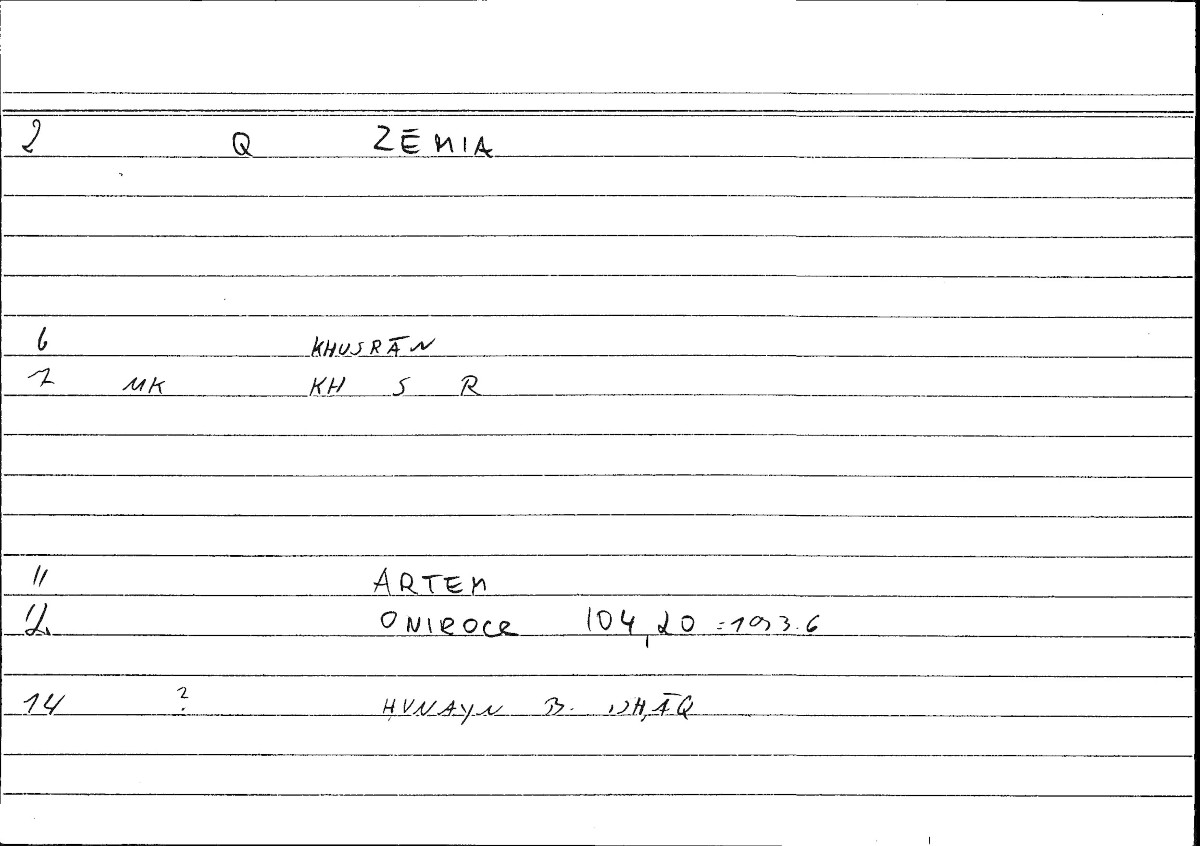 2 Q ZĒMIA
6 KHUSRĀN
7 MK KH S R
11 ARTEM
12 ONIROCR 104,20 = 193.6
14 ? ḤUNAYN B. ISḤĀQ